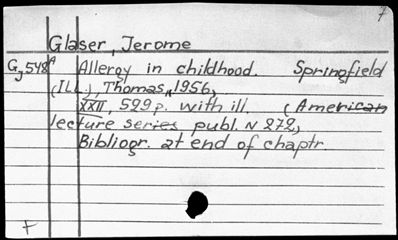 7
Glaser, Jerome
Gj 548A Allergy in childhood. Springfield
(ILL.), Thomas, 1956,
XXII, 529 p. with ill. (American
lecture series publ. N 272,
Bibliogr. at end of chaptr.
+